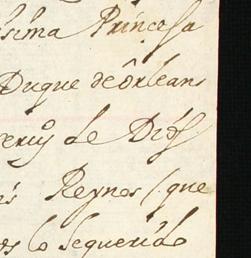 ísima Princesa
Duque de Orleans
de Dios
Reynos (que
lo sequerido